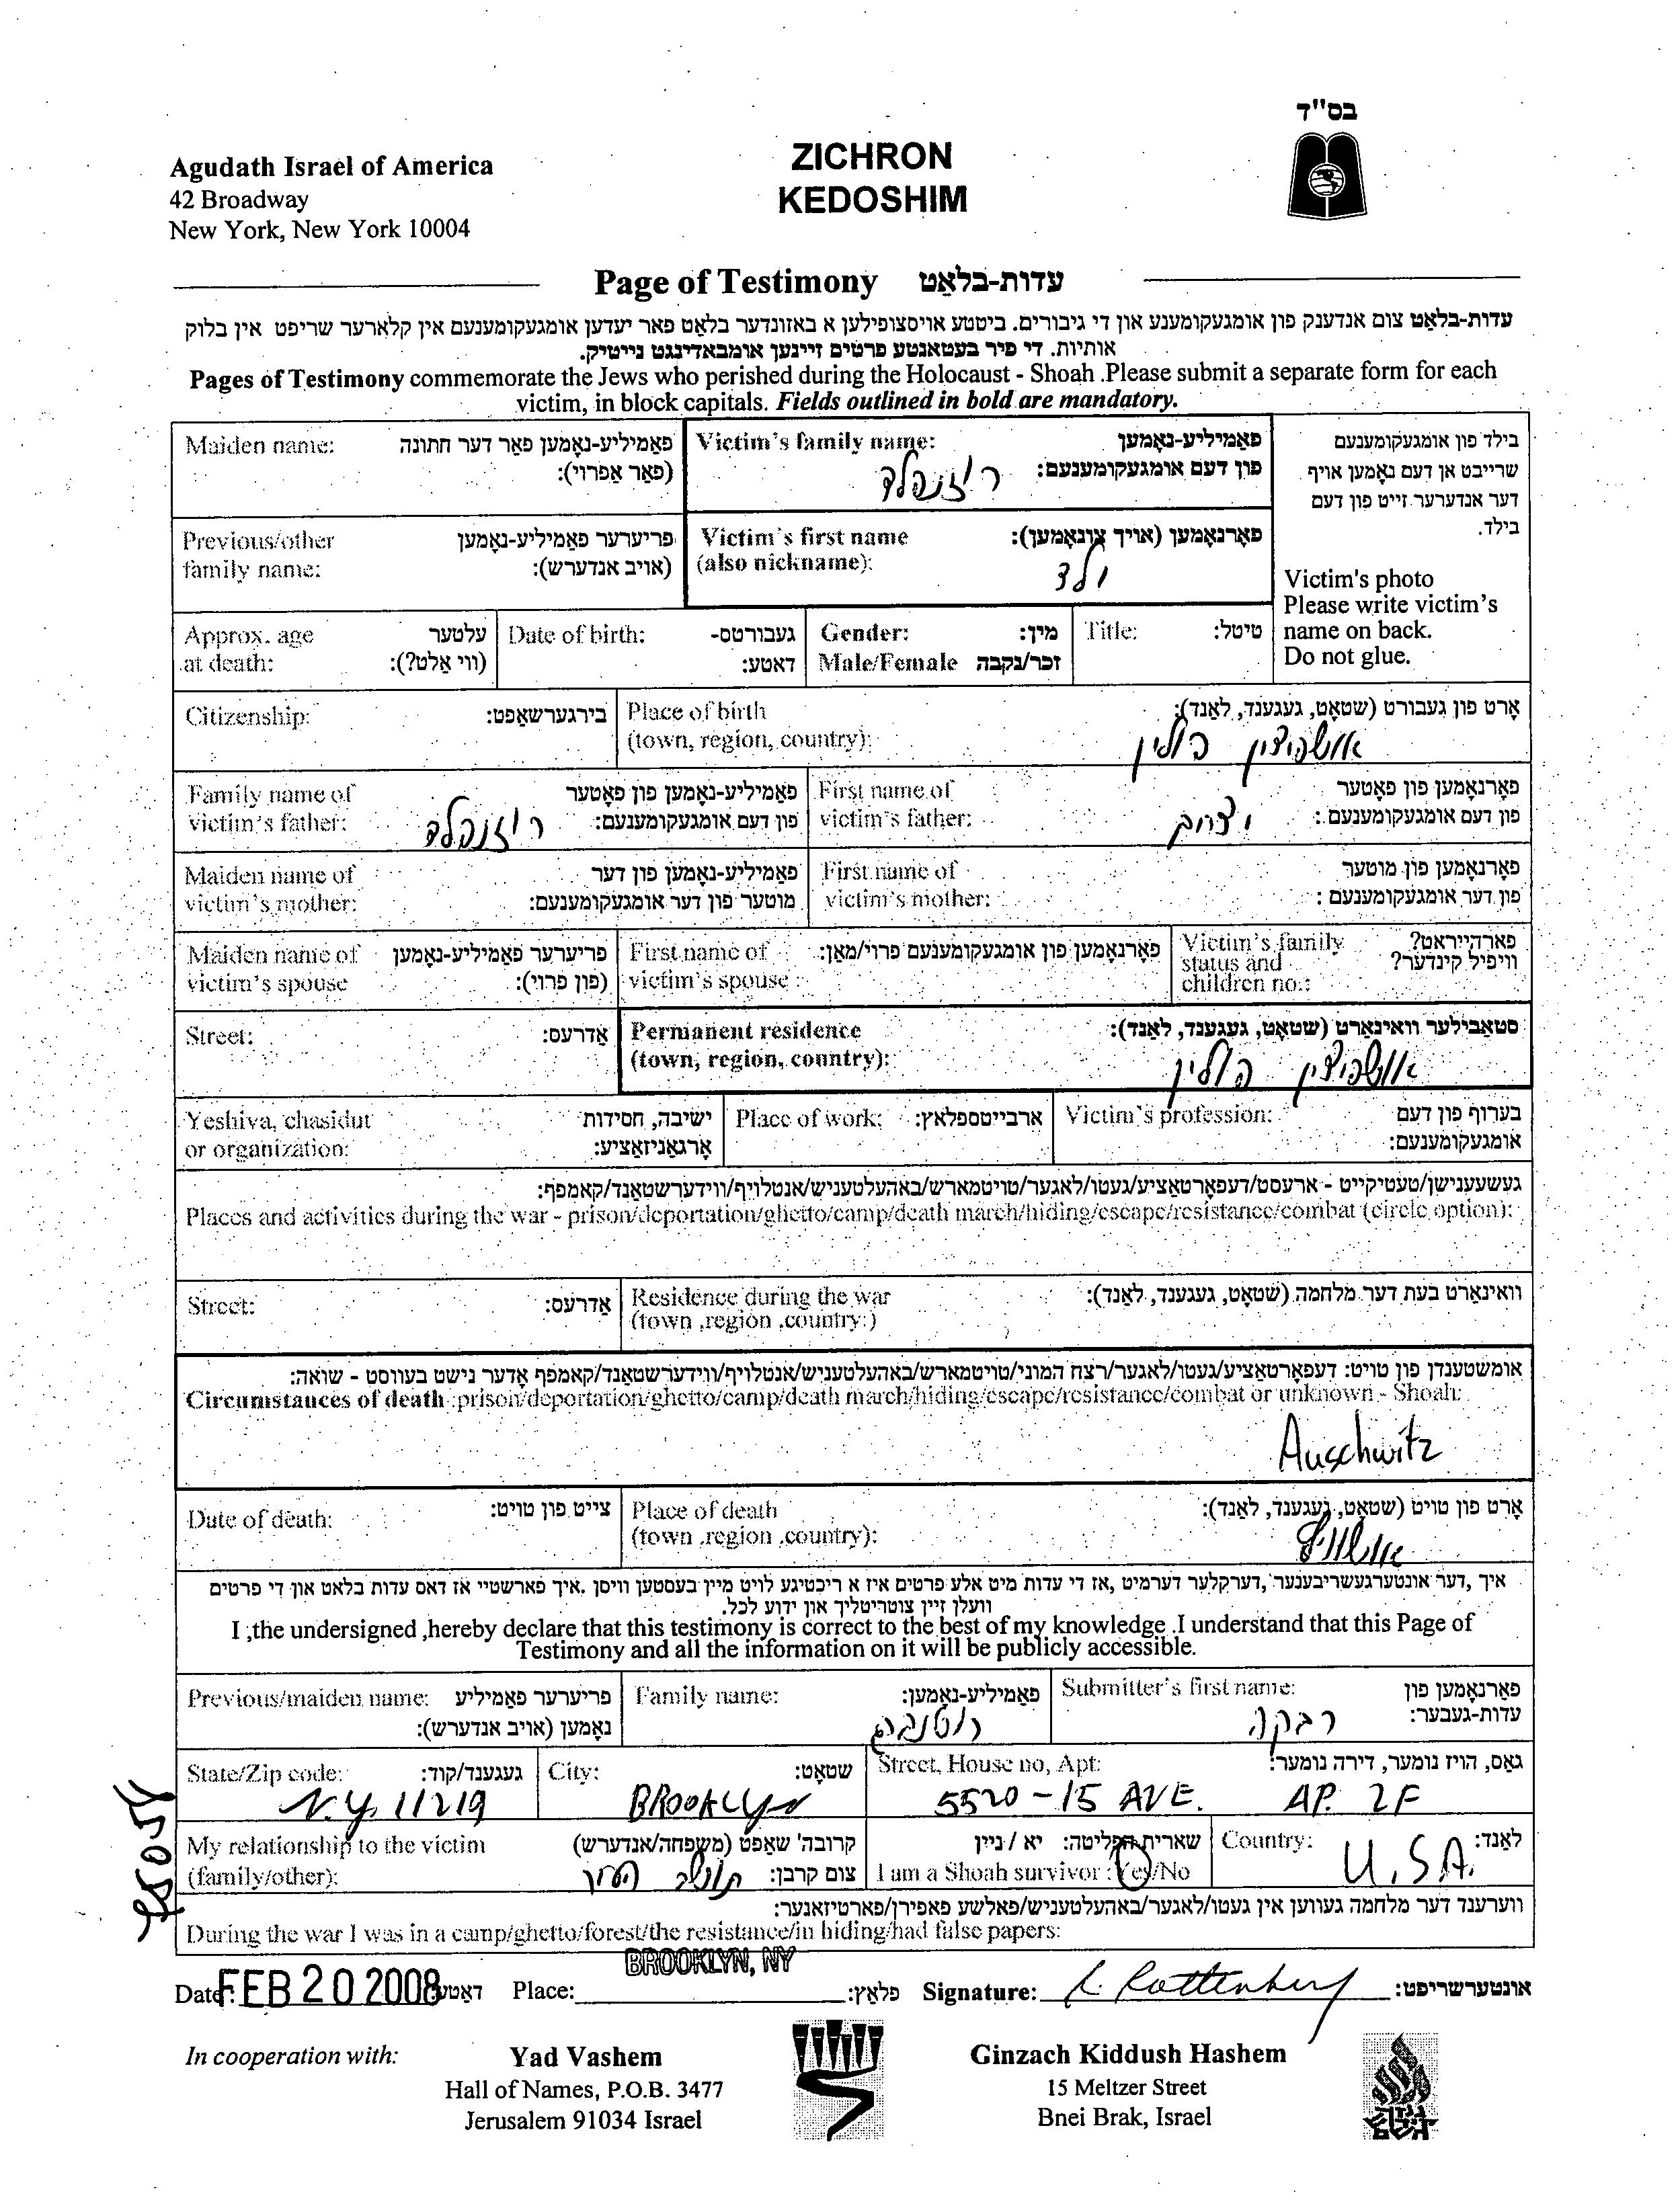 בס"ד
Agudath Israel of America
42 Broadway
New York, New York 10004
ZICHRON
KEDOSHIM
Page of Testimony עדות-בלאַט
עדות-בלאַט צום אנדענק פון אומגעקומענע און די גיבורים. ביטטע אויסצופילען א באזונדער בלאט פאר יעדען אומגעקומענעם אין קלארער שריפט אין בלוק
אותיות. די פיר בעטאנטע פרטים זיינען אומבאדינגט נייטיק.
Pages of Testimony commemorate the Jews who perished during the Holocaust - Shoah .Please submit a separate form for each
victim, in block capitals. Fields outlined in bold are mandatory.
Maiden name: פאַמיליע-נאָמען פאַר דער חתונה
(פאַר אַפרוי):
Victim's family name: פאַמיליע-נאָמען
פון דעם אומגעקומענעם:
ריזנפלד
בילד פון אומגעקומענעם
שרייבט אן דעם נאָמען אויף
דער אנדערער זייט פון דעם
בילד.
Victim's photo
Please write victim's
name on back.
Do not glue.
Previous/other פריערער פאַמיליע-נאָמען
family name: (אויב אנדערש):
Victim's first name פאָרנאָמען (אויך צונאָמען):
(also nickname):
ילד
Approx. age עלטער
at death: (ווי אַלט?):
Date of birth: געבורטס-
דאטע:
Gender: מין:
Male/Female זכר/נקבה
Title: טיטל:
Citizenship: בירגערשאַפט:
Place of birth אָרט פון געבורט (שטאָט, געגענד, לאַנד):
(town, region, country):
אושפיצין פולין
Family name of פאַמיליע-נאָמען פון פאָטער
victim's father: פון דעם אומגעקומענעם:
ריזנפלד
First name of פאָרנאָמען פון פאָטער
victim's father: פון דעם אומגעקומענעם:
יצחק
Maiden name of פאַמיליע-נאָמען פון דער
victim's mother: מוטער פון דער אומגעקומענעם:
First name of פאָרנאָמען פון מוטער
victim's mother: פון דער אומגעקומענעם :
Maiden name of פריערער פאַמיליע-נאָמען
victim's spouse (פון פרוי):
First name of פאָרנאָמען פון אומגעקומענעם פרוי/מאַן:
victim's spouse :
Victim's family פארהייראט?
status and וויפיל קינדער?
children no.:
Street: אַדרעס:
Permanent residence סטאַבילער וואינאָרט (שטאָט, געגענד, לאַנד):
(town, region, country):
אושפיצין פולין
Yeshiva, chasidut ישיבה, חסידות
or organization: אָרגאַניזאַציע:
Place of work: ארבייטספלאַץ:
Victim's profession: בערוף פון דעם
אומגעקומענעם:
געשעענישן/טעטיקייט - ארעסט/דעפאָרטאַציע/געטו/לאַגער/טויטמארש/באַהעלטעניש/אנטלויף/ווידערשטאַנד/קאמפף:
Places and activities during the war - prison/deportation/ghetto/camp/death march/hiding/escape/resistance/combat (circle option):
Street: אַדרעס:
Residence during the war וואינאָרט בעת דער מלחמה (שטאָט, געגענד, לאַנד):
(town ,region ,country:)
אומשטענדן פון טויט: דעפאָרטאַציע/געטו/לאַגער/רצח המוני/טויטמארש/באהעלטעניש/אנטלויף/ווידערשטאַנד/קאמפף אָדער נישט בעווסט - שואה:
Circumstances of death :prison/deportation/ghetto/camp/death march/hiding/escape/resistance/combat or unknown - Shoah:
Auschwitz
Date of death: צייט פון טויט:
Place of death אָרט פון טויט (שטאָט, געגענד, לאַנד):
(town ,region ,country):
אושוויץ
איך ,דער אונטערגעשריבענער ,דערקלער דערמיט ,אז די עדות מיט אלע פרטים איז א ריכטיגע לויט מיין בעסטען וויסן .איך פארשטיי אז דאס עדות בלאט און די פרטים
וועלן זיין צוטריטליך און ידוע לכל.
I ,the undersigned ,hereby declare that this testimony is correct to the best of my knowledge .I understand that this Page of
Testimony and all the information on it will be publicly accessible.
Previous/maiden name: פריערער פאַמיליע
נאָמען (אויב אנדערש):
Family name: פאַמיליע-נאָמען:
רוטנברג
Submitter's first name: פאָרנאָמען פון
עדות-געבער:
רבקה
State/Zip code: געגענד/קוד:
N.Y. 11219
City: שטאָט:
BROOKLYN
Street, House no, Apt: גאַס, הויז נומער, דירה נומער:
5520 - 15 AVE. AP. 2F
My relationship to the victim קרובה' שאַפט (משפחה/אנדערש)
(family/other): צום קרבן:
תושב העיר
שארית הפליטה: יא / ניין
I am a Shoah survivor : Yes/No
Country: לאַנד:
U.S.A.
ווערענד דער מלחמה געווען אין געטו/לאַגער/באַהעלטעניש/פאלשע פאפירן/פארטיזאנער:
During the war I was in a camp/ghetto/forest/the resistance/in hiding/had false papers:
Date: FEB 20 2008 דאטע
Place: BROOKLYN, NY פלאַץ:
Signature: R. Rottenberg אונטערשריפט:
In cooperation with:
Yad Vashem
Hall of Names, P.O.B. 3477
Jerusalem 91034 Israel
Ginzach Kiddush Hashem
15 Meltzer Street
Bnei Brak, Israel